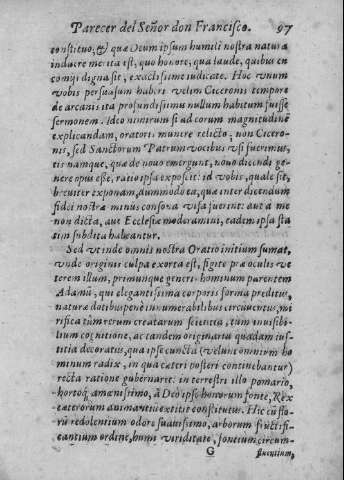 Parecer del Señor don Francisco. 97
constituo, & quæ Deum ipsum humili nostra natura
induere merita est, quo honore, qua laude, quibus en
comijs digna sit, exactissime iudicate. Hoc vnum
vobis persuasum haberi velim Ciceronis tempore
de arcanis ita profundissimis nullum habitum fuisse
sermonem. Ideo nimirum si ad eorum magnitudinē
explicandam, oratori munere relicto; non Cicero-
nis, sed Sanctorum Patrum vocibus vsi fuerimus,
tis namque, quæ de nouo emergunt, nouo dicendi ge-
nere opus esse, ratio ipsa exposcit: id vobis, quale sit,
breuiter exponam, dummodo ea, quæ inter dicendum
fidei nostræ minus consona visa fuerint. aut à me
non dicta, aut Ecclesiæ moderamini, eadem ipsa sta
tim subdita habeantur.
Sed vt inde omnis nostra Oratio initium sumat,
vnde originis culpa exorta est, figite præ oculis ve
terem illum, primumque generis hominum parentem
Adamū, qui elegantissima corporis forma preditus,
naturæ dotibus penè innumerabilibus circuuentus, mi
rifica tùm rerum creatarum scientia, tum inuisibi-
lium cognitione, ac tandem originaria quadam ius-
titia decoratus, qua ipse cuncta (velut omnium ho
minum radix, in qua cæteri posteri continebantur)
recta ratione gubernaret. in terrestri illo pomario,
hortoq́ amœnissimo, à Deo ipso honorum fonte, Rex
cæterorum animantiū extitit constitutus. Hic cū flo-
rū redolentium odore suauissimo, arborum fructifi-
cantium ordine, humi viriditate, fontium circum-
G fluentium,